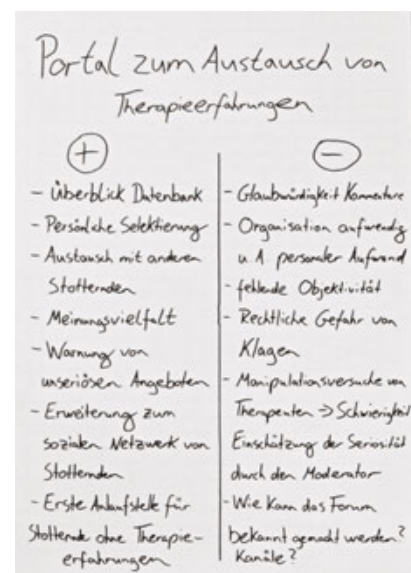 Portal zum Austausch von
Therapieerfahrungen
+
- Überblick Datenbank
- Persönliche Selektierung
- Austausch mit anderen
Stotternden
- Meinungsvielfalt
- Warnung von
unseriösen Angeboten
- Erweiterung zum
sozialen Netzwerk von
Stotternden
- Erste Anlaufstelle für
Stotternde ohne Therapie-
erfahrungen
-
- Glaubwürdigkeit Kommentare
- Organisation aufwendig
u. A. personaler Aufwand
- fehlende Objektivität
- Rechtliche Gefahr von
Klagen
- Manipulationsversuche von
Therapeuten → Schwierigkeit
Einschätzung der Seriosität
durch den Moderator
- Wie kann das Forum
bekannt gemacht werden?
Kanäle?